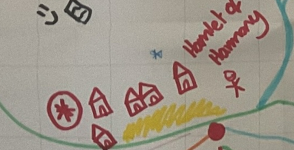 Hamlet of
Harmony